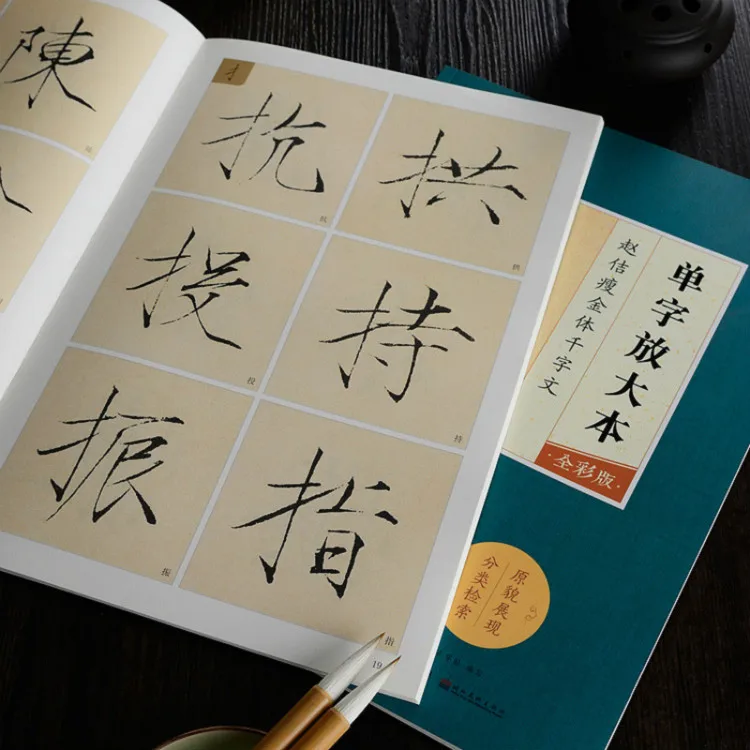 陳
扌
抗 拱
抗 拱
投 持
投 持
振 指
振 指
19
单字放大本
赵佶瘦金体千字文
·全彩版·
原貌展现
分类检索